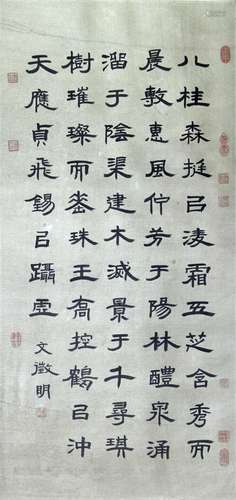 八桂森挺㠯凌霜五芝含秀而
晨敷惠風佇芳于陽林醴泉涌
溜于陰渠建木滅景于千尋琪
樹璀璨而垂珠王喬控鶴㠯沖
天應貞飛錫㠯躡虛
文徵明